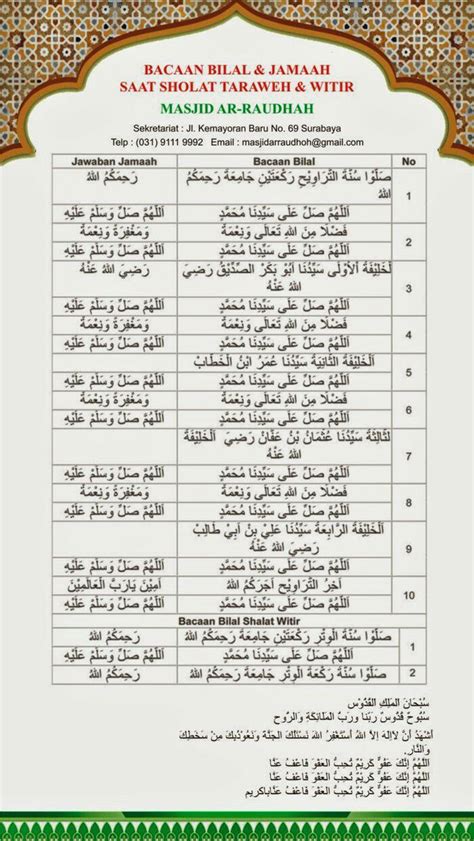 BACAAN BILAL & JAMAAH
SAAT SHOLAT TARAWEH & WITIR
MASJID AR-RAUDHAH
Sekretariat : Jl. Kemayoran Baru No. 69 Surabaya
Telp : (031) 9111 9992 Email : masjidarraudhoh@gmail.com
Jawaban Jamaah Bacaan Bilal No
1 صَلُّوْا سُنَّةَ التَّرَاوِيْحِ رَكْعَتَيْنِ جَامِعَةً رَحِمَكُمُ رَحِمَكُمُ اللهُ
اللهُ
اَللّٰهُمَّ صَلِّ عَلَى سَيِّدِنَا مُحَمَّدٍ اَللّٰهُمَّ صَلِّ وَسَلِّمْ عَلَيْهِ
2 فَضْلًا مِنَ اللهِ تَعَالَى وَنِعْمَةً وَمَغْفِرَةً وَنِعْمَةً
اَللّٰهُمَّ صَلِّ عَلَى سَيِّدِنَا مُحَمَّدٍ اَللّٰهُمَّ صَلِّ وَسَلِّمْ عَلَيْهِ
3 لْخَلِيْفَةُ الْأَوْلَى سَيِّدُنَا أَبُوْ بَكَرْ الصِّدِّيْقُ رَضِيَ رَضِيَ اللهُ عَنْهُ
اللهُ عَنْهُ
اَللّٰهُمَّ صَلِّ عَلَى سَيِّدِنَا مُحَمَّدٍ اَللّٰهُمَّ صَلِّ وَسَلِّمْ عَلَيْهِ
4 فَضْلًا مِنَ اللهِ تَعَالَى وَنِعْمَةً وَمَغْفِرَةً وَنِعْمَةً
اَللّٰهُمَّ صَلِّ عَلَى سَيِّدِنَا مُحَمَّدٍ اَللّٰهُمَّ صَلِّ وَسَلِّمْ عَلَيْهِ
5 اَلْخَلِيْفَةُ الثَّانِيَةُ سَيِّدُنَا عُمَرُ ابْنُ الْخَطَّابْ
اَللّٰهُمَّ صَلِّ عَلَى سَيِّدِنَا مُحَمَّدٍ اَللّٰهُمَّ صَلِّ وَسَلِّمْ عَلَيْهِ
6 فَضْلًا مِنَ اللهِ تَعَالَى وَنِعْمَةً وَمَغْفِرَةً وَنِعْمَةً
اَللّٰهُمَّ صَلِّ عَلَى سَيِّدِنَا مُحَمَّدٍ اَللّٰهُمَّ صَلِّ وَسَلِّمْ عَلَيْهِ
7 لثَالِثَةُ سَيِّدُنَا عُثْمَانُ بْنُ عَفَّانَ رَضِيَ اَلْخَلِيْفَةُ
اللهُ عَنْهُ
اَللّٰهُمَّ صَلِّ عَلَى سَيِّدِنَا مُحَمَّدٍ اَللّٰهُمَّ صَلِّ وَسَلِّمْ عَلَيْهِ
8 فَضْلًا مِنَ اللهِ تَعَالَى وَنِعْمَةً وَمَغْفِرَةً وَنِعْمَةً
اَللّٰهُمَّ صَلِّ عَلَى سَيِّدِنَا مُحَمَّدٍ اَللّٰهُمَّ صَلِّ وَسَلِّمْ عَلَيْهِ
9 اَلْخَلِيْفَةُ الرَّابِعَةُ سَيِّدُنَا عَلِيْ بْنِ اَبِيْ طَالِبْ
رَضِيَ اللهُ عَنْهُ
اَللّٰهُمَّ صَلِّ عَلَى سَيِّدِنَا مُحَمَّدٍ اَللّٰهُمَّ صَلِّ وَسَلِّمْ عَلَيْهِ
10 آخِرُ التَّرَاوِيْحِ اَجَرَكُمُ اللهُ اٰمِيْنَ يَارَبَّ الْعَالَمِيْنَ
اَللّٰهُمَّ صَلِّ عَلَى سَيِّدِنَا مُحَمَّدٍ اَللّٰهُمَّ صَلِّ وَسَلِّمْ عَلَيْهِ
Bacaan Bilal Shalat Witir
1 صَلُّوْا سُنَّةَ الْوِتْرِ رَكْعَتَيْنِ جَامِعَةً رَحِمَكُمُ اللهُ رَحِمَكُمُ اللهُ
اَللّٰهُمَّ صَلِّ عَلَى سَيِّدِنَا مُحَمَّدٍ اَللّٰهُمَّ صَلِّ وَسَلِّمْ عَلَيْهِ
2 صَلُّوْا سُنَّةَ رَكْعَةَ الْوِتْرِ جَامِعَةً رَحِمَكُمُ اللهُ رَحِمَكُمُ اللهُ
سُبْحَانَ الْمَلِكِ الْقُدُّوْسِ
سُبُّوْحٌ قُدُّوْسٌ رَبُّنَا وَرَبُّ الْمَلَائِكَةِ وَالرُّوْحِ
أَشْهَدُ أَنْ لَاإِلٰهَ إِلَّا اللهُ أَسْتَغْفِرُ اللهَ نَسْئَلُكَ الْجَنَّةَ وَنَعُوْذُبِكَ مِنْ سَخَطِكَ
وَالنَّارِ.
اَللّٰهُمَّ إِنَّكَ عَفُوٌّ كَرِيْمٌ تُحِبُّ الْعَفْوَ فَاعْفُ عَنَّا
اَللّٰهُمَّ إِنَّكَ عَفُوٌّ كَرِيْمٌ تُحِبُّ الْعَفْوَ فَاعْفُ عَنَّا
اَللّٰهُمَّ إِنَّكَ عَفُوٌّ كَرِيْمٌ تُحِبُّ الْعَفْوَ فَاعْفُ عَنَّاياكَرِيم